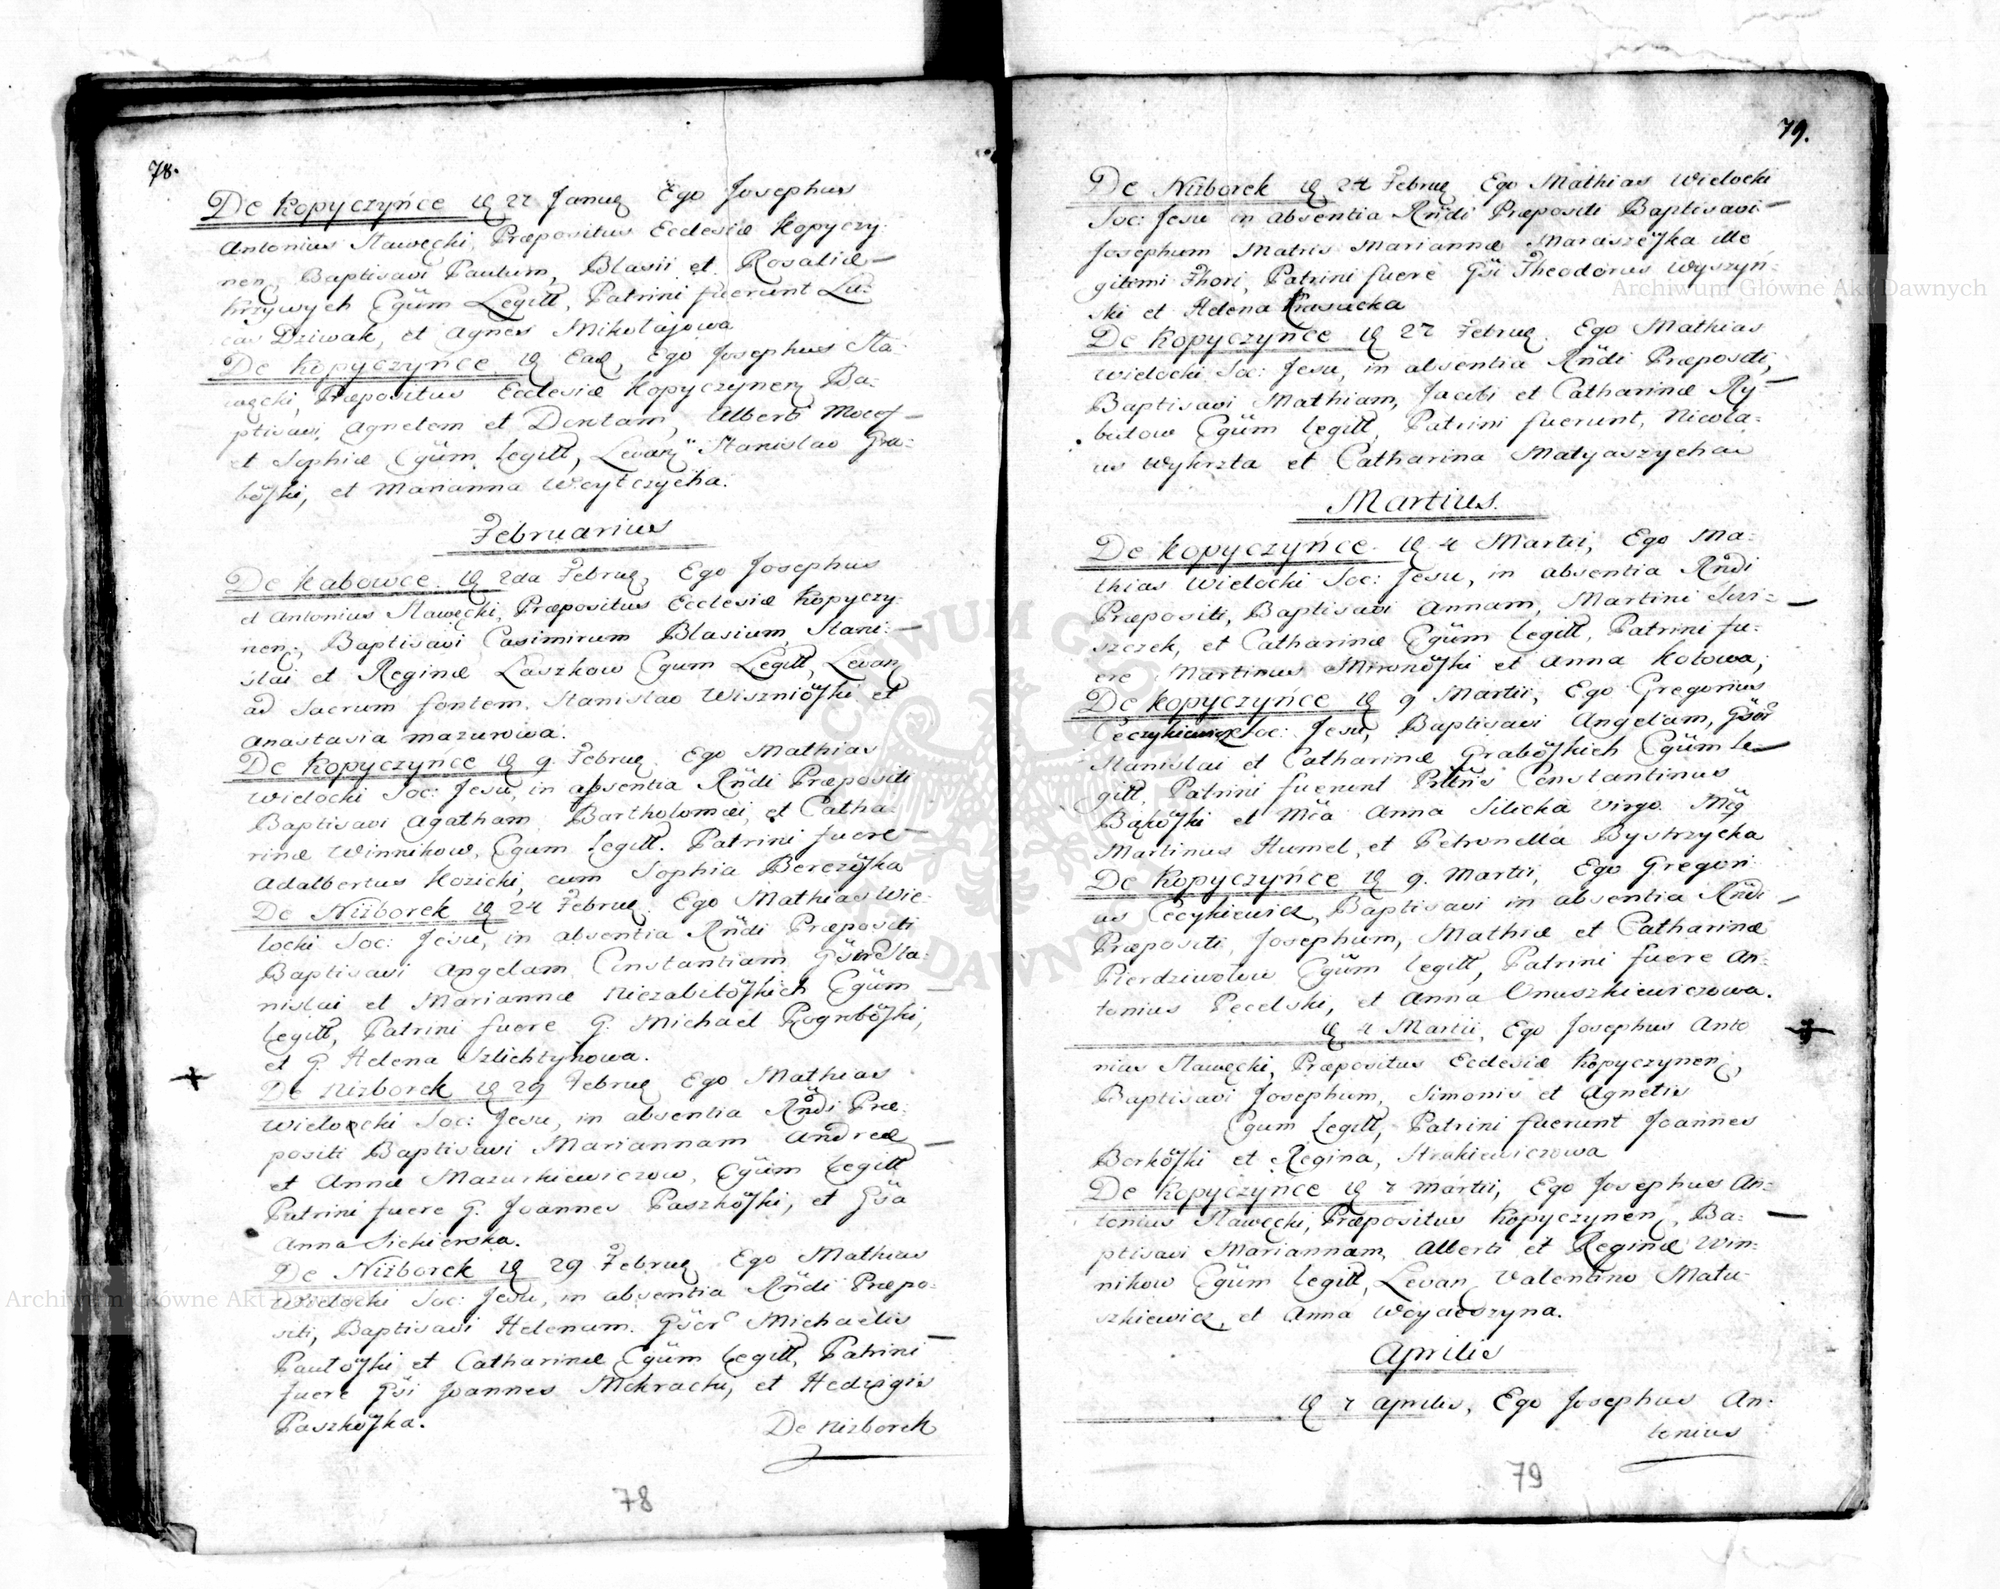 78.
De Kopyczyńce D 27 Januę Ego Josephus
Antonius Sławęcki, Præpositus Ecclesiæ Kopyczy:
nen, Baptisavi Paulum, Blasii et Rosaliæ
Krzywych Cgüm Legitt, Patrini fuerunt Lu:
cas Dziwak, et Agnes Mikołajowa
De Kopyczyńce D Ead, Ego Josephus Sła:
węcki, Præpositus Ecclesiæ Kopyczynen Ba:
ptisavi, Agnetem et Alberti
et Sophiæ Cgüm Legitt, Levan Stanislao Gra:
böſki, et Marianna Woytczycha.
Februarius
De Kabowce D 2da Februę, Ego Josephus
et Antonius Sławęcki, Præpositus Ecclesiæ Kopyczy:
nen, Baptisavi Casimirum Blasium, Stani:
slai et Reginæ Laszkow Cgum Legitt, Levan
ad Sacrum fontem, Stanislao Wiszniöſki et
Anastasia Mazurowa.
De Kopyczyńce D 9 Februę Ego Mathias
Wielocki Soc: Jesu, in absentia Rn̈di Præpositi
Baptisavi Agatham, Bartholomæi, et Catha:
rinæ Winnikow, Cgum Legitt. Patrini fuere
Adalbertus Kozicki, cum Sophia Berezöſka
De Niżborek D 24 Februę Ego Mathias Wie:
locki Soc: Jesu, in absentia Rn̈di Præpositi
Baptisavi Angelam Constantiam Sta:
nislai et Mariannæ Niezabitöſkich Cgüm
Legitt, Patrini fuere G. Michael
et G Helena Szlichtynowa.
De Niżborek D 29 Februę Ego Mathias
Wielocki Soc: Jesu, in absentia Rn̈di Præ:
positi Baptisavi Mariannam Andreæ
et Annæ Mazurkiewiczow, Cgüm Legitt
Patrini fuere G. Joannes Paszköſki, et Gs̈a
Anna Siekierska.
De Niżborek D 29 Februę Ego Mathias
Wielocki Soc: Jesu, in absentia Rn̈di Præpo:
siti, Baptisavi Helenam. Michaelis
Pautöſki et Catharinæ Cgüm Legitt, Patrini
fuere Gs̈i Joannes et Hedvigis
Paszköſka.
De Niżborek
78
79.
De Niżborek D 24 Februę Ego Mathias Wielocki
Soc: Jesu in absentia Rn̈di Præpositi Baptisavi
Josephum Matris Mariannæ Maraszëſka ille
gitimi Thori, Patrini fuere Gs̈i Theodorus Wyszyń:
ski et Helena Krasucka
De Kopyczyńce D 27 Februę. Ego Mathias
Wielocki Soc: Jesu, in absentia Rn̈di Præpositi,
Baptisavi Mathiam, Jacobi et Catharinæ Ry
butow Cgüm Legitt, Patrini fuerunt, Nicola:
us Wykrzta et Catharina Matyaszycha
Martius.
De Kopyczyńce D 4 Martii, Ego Ma:
thias Wielocki Soc: Jesu, in absentia Rn̈di
Præpositi, Baptisavi Annam, Martini
et Catharinæ Cgüm Legitt, Patrini fu:
ere Martinus Mironöſki et Anna Kotowa,
De Kopyczyńce D 9 Martii, Ego Gregorius
Soc: Jesu, Baptisavi Angelam,
Stanislai et Catharinæ Graböſkich Cgüm Le
gitt, Patrini fuerunt Constantinus
Baköſki et Anna Silicka Virgo
Martinus Humel, et Petronella Bystrzycka
De Kopyczyńce D 9. Martii, Ego Gregori:
us Cecykiewicz, Baptisavi in absentia Rn̈di
Præpositi, Josephum, Mathiæ et Catharinæ
Cgüm Legitt, Patrini fuere An:
tonius Pecelski, et Anna Onuszkiewiczowa.
D 4 Martii, Ego Josephus Anto
nius Sławęcki, Præpositus Ecclesiæ Kopyczynen,
Baptisavi Josephum, Simonis et Agnetis
Cgum Legitt, Patrini fuerunt Joannes
Borköſki et Regina,
De Kopyczyńce D 7 Martii, Ego Josephus An:
tonius Sławęcki, Præpositus Kopyczynen, Ba:
ptisavi Mariannam, Alberti et Reginæ Win:
nikow Cgüm Legitt, Levan Valentino Matu
szkiewicz, et Anna
Aprilis
D 7 Aprilis, Ego Josephus An:
tonius
79
Archiwum Główne Akt Dawnych
Archiwum Główne Akt Dawnych